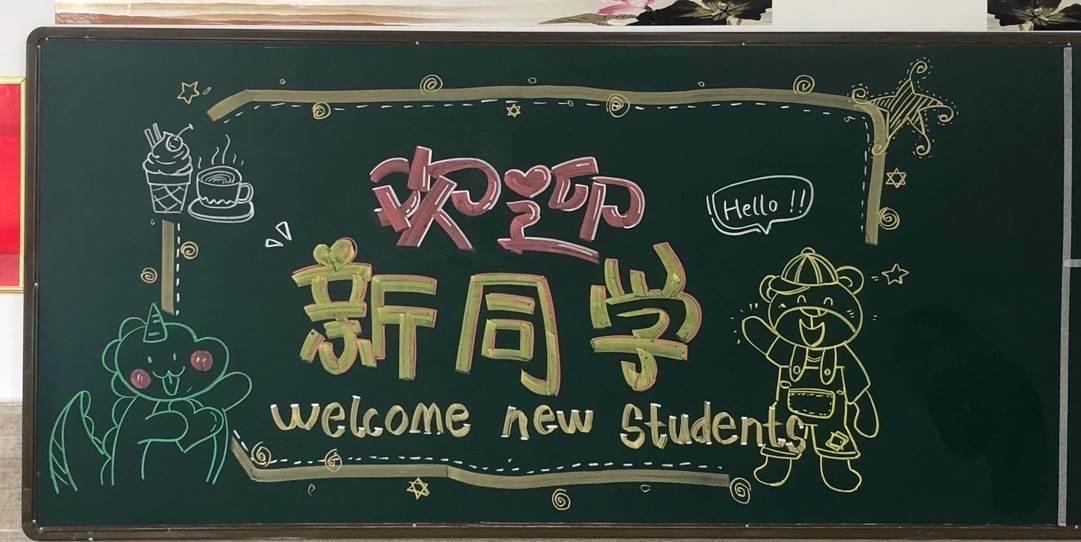 欢迎
Hello !!
新同学
welcome new students